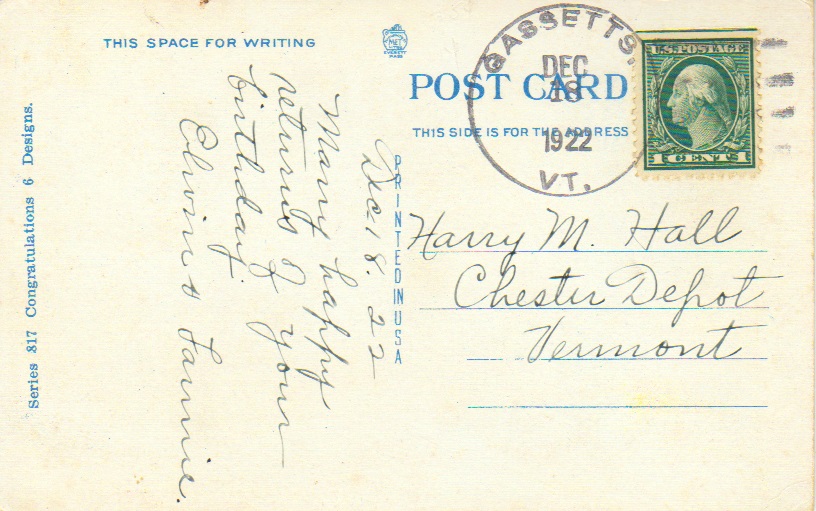 THIS SPACE FOR WRITING
MET
EVERETT
MASS
GASSETTS,
DEC
18
1922
VT.
U.S. POSTAGE
1 CENT 1
POST CARD
THIS SIDE IS FOR THE ADDRESS
PRINTED IN USA
Series 317 Congratulations 6 Designs.
Dec. 18. 22
Many happy
returns of your
birthday.
Elwin & Fannie.
Harry M. Hall
Chester Depot
Vermont